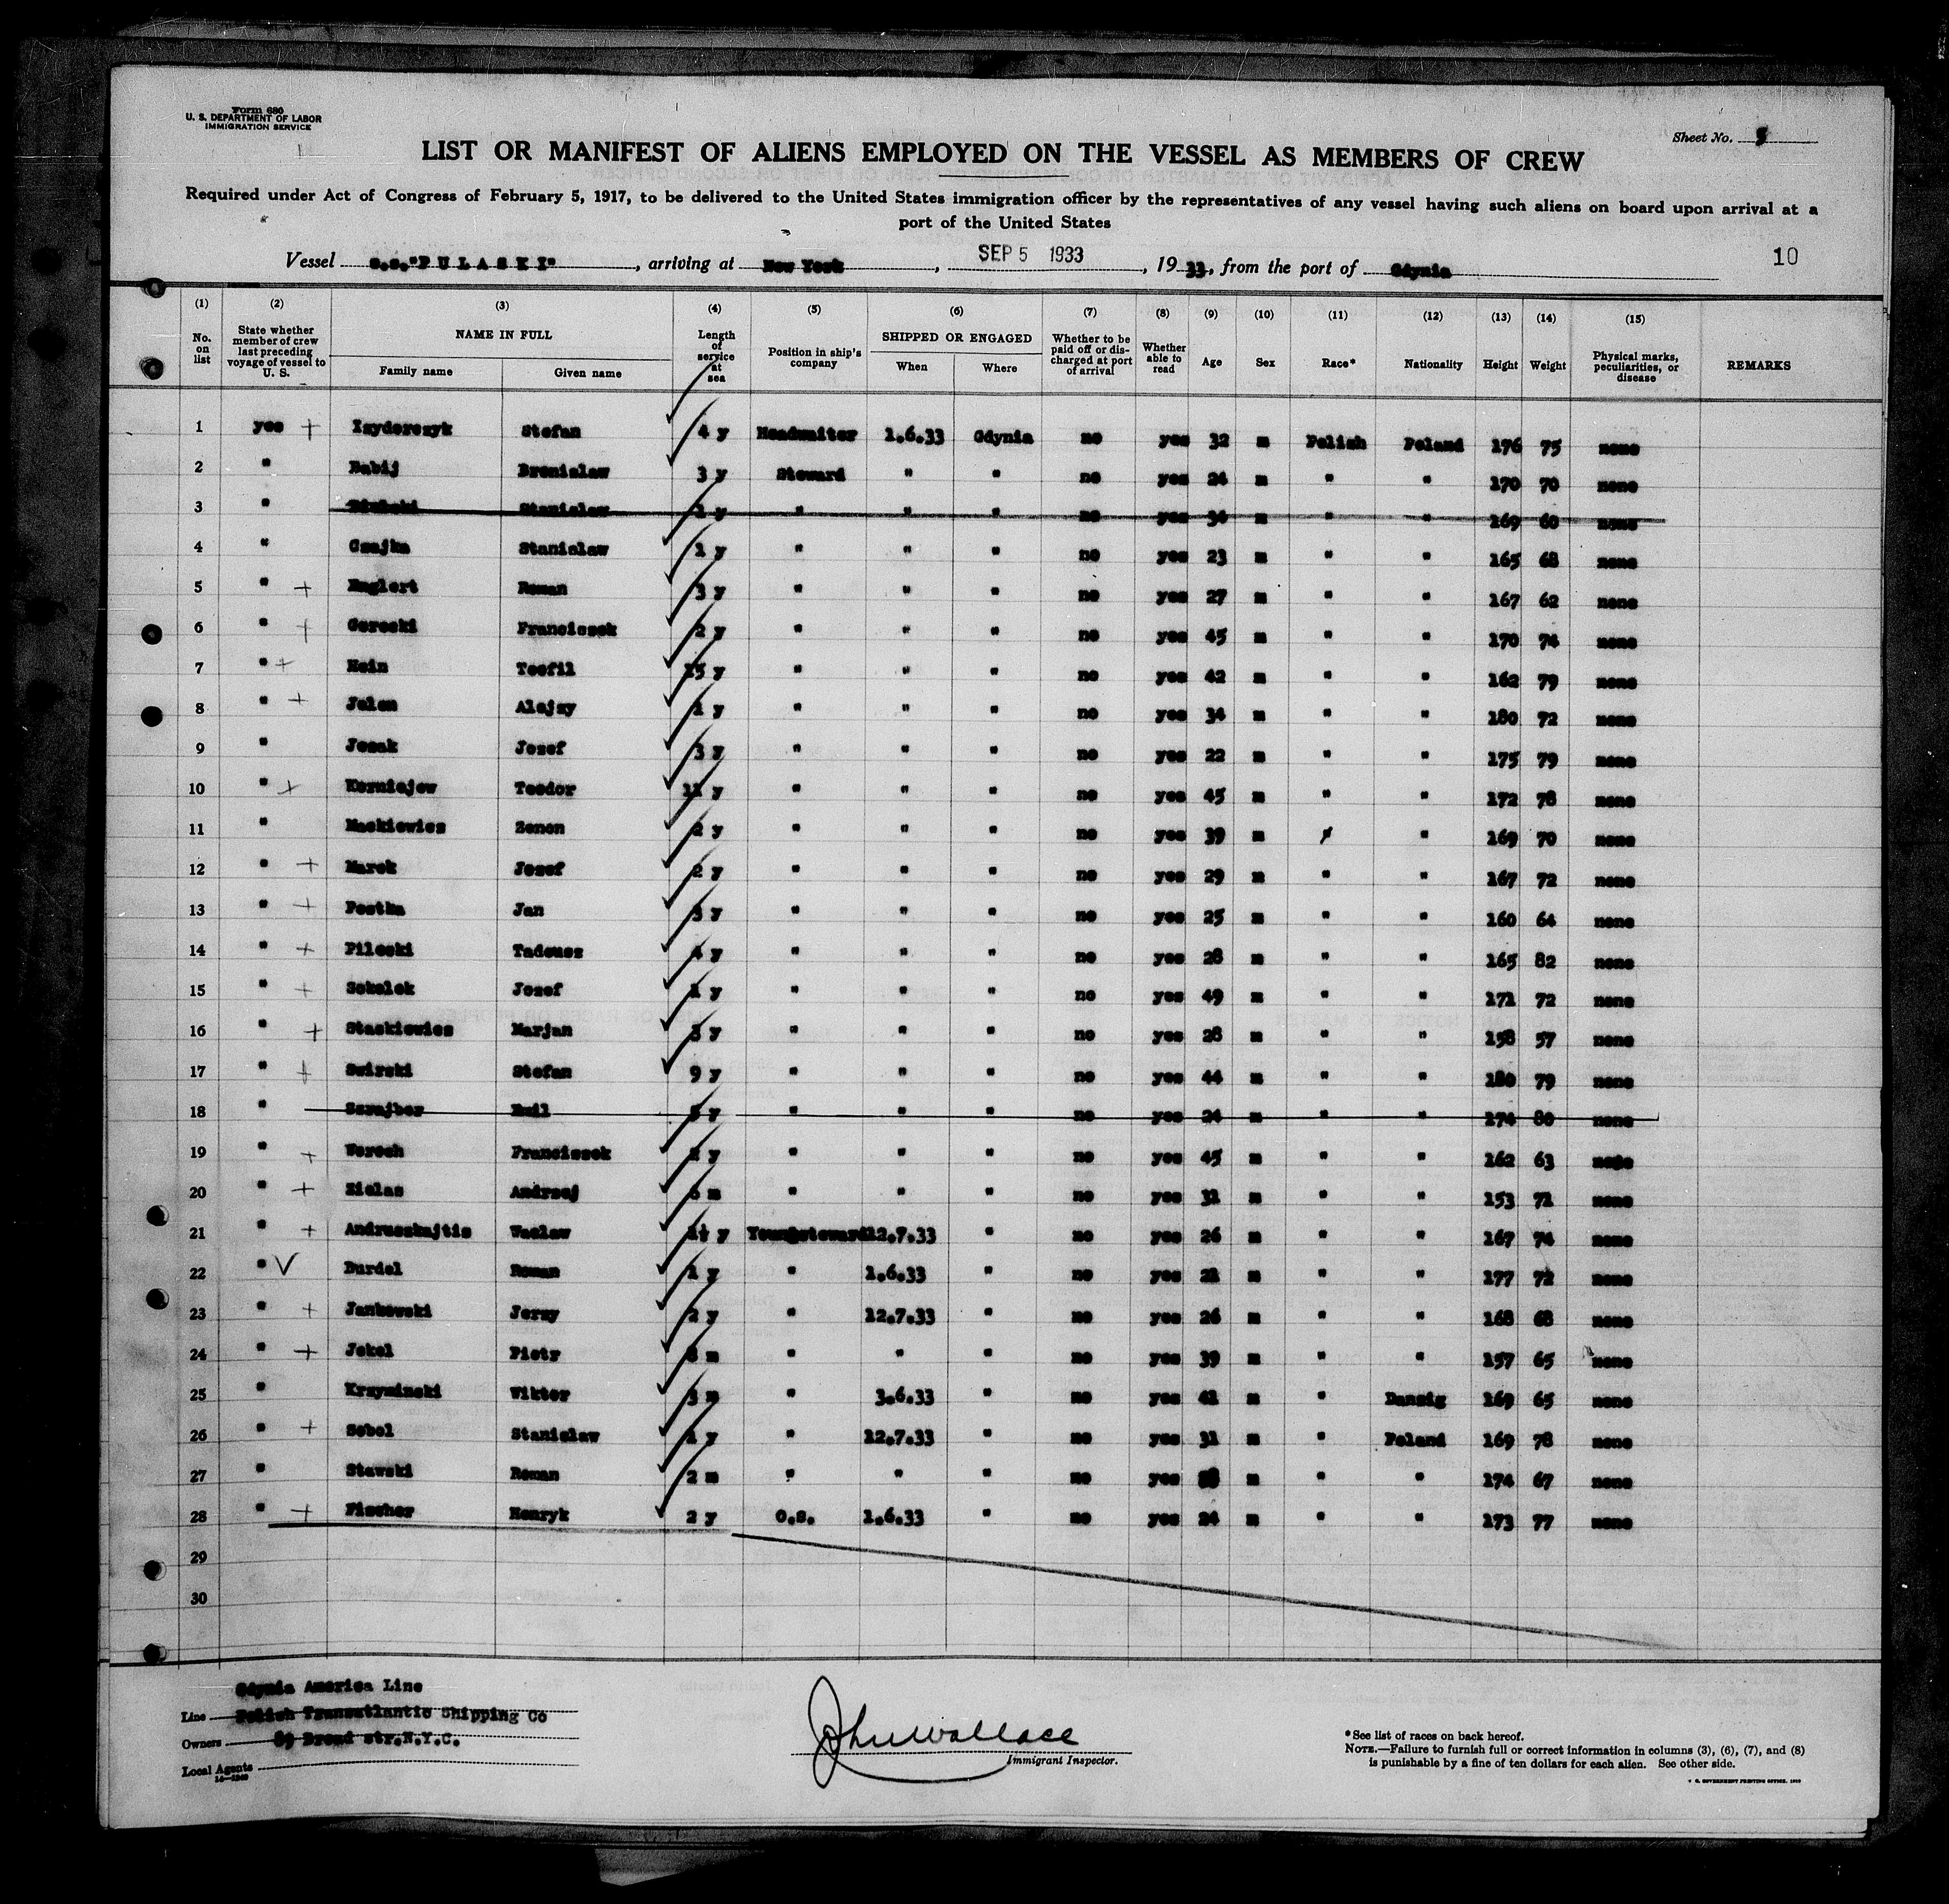 Form 680
U. S. DEPARTMENT OF LABOR
IMMIGRATION SERVICE
Sheet No.
LIST OR MANIFEST OF ALIENS EMPLOYED ON THE VESSEL AS MEMBERS OF CREW
Required under Act of Congress of February 5, 1917, to be delivered to the United States immigration officer by the representatives of any vessel having such aliens on board upon arrival at a
port of the United States
Vessel s.s."PULASKI", arriving at New York, SEP 5 1933, 1933, from the port of Gdynia
10
(1) (2) (3) (4) (5) (6) (7) (8) (9) (10) (11) (12) (13) (14) (15)
No. on list State whether member of crew last preceding voyage of vessel to U. S. NAME IN FULL Family name Given name Length of service at sea Position in ship's company SHIPPED OR ENGAGED When Where Whether to be paid off or discharged at port of arrival Whether able to read Age Sex Race* Nationality Height Weight Physical marks, peculiarities, or disease REMARKS
1 yes + Izyderczyk Stefan 4 y Headwaiter 1.6.33 Gdynia no yes 32 m Polish Poland 176 75 none
2 " Babij Bronislaw 3 y Steward " " no yes 24 m " " 170 70 none
3 " Stanislaw 1 y " " " no yes 34 m " " 169 68 none
4 " Czajka Stanislaw 1 y " " " no yes 23 m " " 165 68 none
5 " + Englert Roman 3 y " " " no yes 27 m " " 167 62 none
6 " + Gorecki Franciszek 2 y " " " no yes 45 m " " 170 74 none
7 " + Hein Teofil 15 y " " " no yes 42 m " " 162 79 none
8 " + Jelen Alojzy 1 y " " " no yes 34 m " " 180 72 none
9 " Jozak Jozef 3 y " " " no yes 22 m " " 175 79 none
10 " + Korniejew Teodor 11 y " " " no yes 45 m " " 172 78 none
11 " Mackiewicz Zenon 2 y " " " no yes 39 m " " 169 70 none
12 " + Marek Jozef 2 y " " " no yes 29 m " " 167 72 none
13 " + Postka Jan 3 y " " " no yes 25 m " " 160 64 none
14 " + Pilecki Tadeusz 4 y " " " no yes 28 m " " 165 82 none
15 " + Sokolek Jozef 1 y " " " no yes 49 m " " 171 72 none
16 " + Staskiewicz Marjan 3 y " " " no yes 28 m " " 158 57 none
17 " + Swirski Stefan 9 y " " " no yes 44 m " " 180 79 none
18 " Szrajber Emil y " " " no yes 24 m " " 174 80 none
19 " + Woroch Franciszek 2 y " " " no yes 45 m " " 162 63 none
20 " + Zielas Andrzej 6 m " " " no yes 31 m " " 153 72 none
21 " + Andruszkajtis Waclaw 1½ y Youngsteward 12.7.33 " no yes 26 m " " 167 74 none
22 " √ Burdel Roman 1 y " 1.6.33 " no yes 21 m " " 177 72 none
23 " + Jankowski Jerzy 2 y " 12.7.33 " no yes 26 m " " 168 68 none
24 " + Jekel Piotr 8 m " " " no yes 39 m " " 157 65 none
25 " Krzyminski Wiktor 3 m " 3.6.33 " no yes 41 m " Danzig 169 65 none
26 " + Sobol Stanislaw 1 y " 12.7.33 " no yes 31 m " Poland 169 78 none
27 " Stawski Roman 2 m " " " no yes m " " 174 67 none
28 " + Fischer Henryk 2 y o.s. 1.6.33 " no yes 24 m " " 173 77 none
29
30
Gdynia America Line
Line Polish Transatlantic Shipping Co
Owners 89 Broad str.N.Y.C.
Local Agents
14—1240
Jhn Wallace
Immigrant Inspector.
*See list of races on back hereof.
NOTE.—Failure to furnish full or correct information in columns (3), (6), (7), and (8)
is punishable by a fine of ten dollars for each alien. See other side.